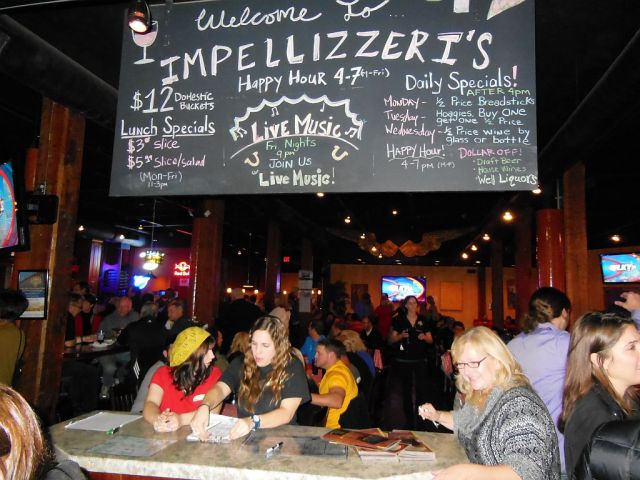 Welcome to
IMPELLIZZERI'S
Happy Hour 4-7 (M-Fri)
$12 DOMESTIC
Buckets
Lunch Specials
$3.00 slice
$5.95 slice/salad
(Mon-Fri)
11-3pm
Live Music
Fri. Nights
9 pm
JOIN US
Live Music!
Daily Specials!
AFTER 4pm
Monday - ½ Price Breadsticks
Tuesday - Hoagies, Buy ONE
get one ½ Price
Wednesday - ½ Price wine by
glass or bottle
HAPPY HOUR!
4-7pm (M-F)
DOLLAR OFF!
· Draft Beer
· House Wines
· Well Liquors